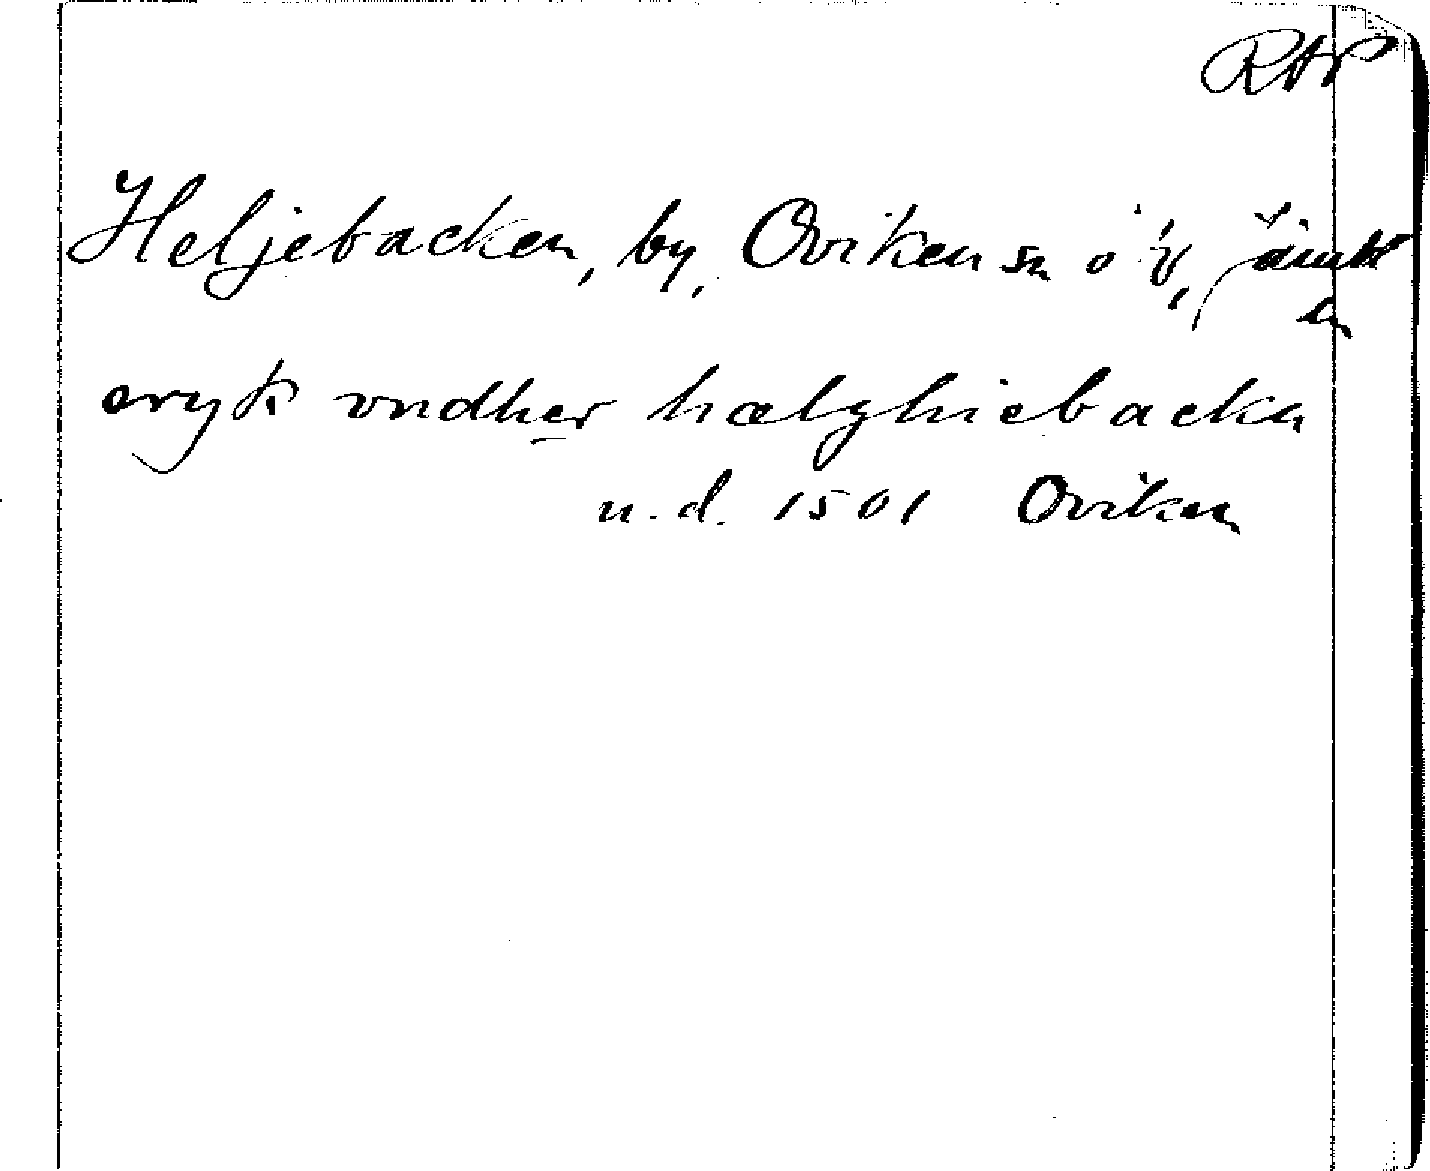 RAP
Heljebacken, by, Oviken sn o. ɣ, Jämtl
ln
eryk vndher hælghiebacka
u. d. 1501 Oviken